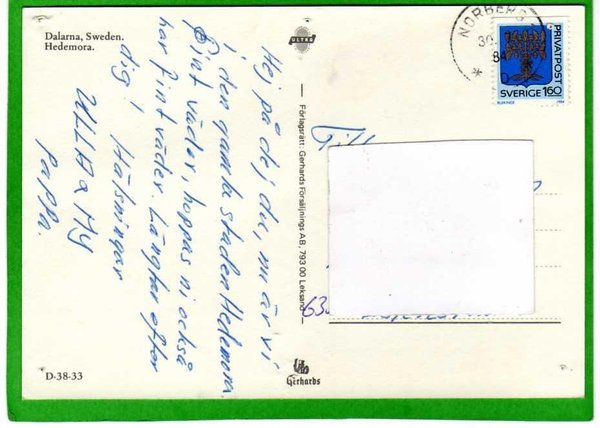 Dalarna, Sweden.
Hedemora.
ULTRA
Hej på dej du, nu är vi
i den gamla staden Hedemora.
Fint väder, hoppas ni också
har fint väder. Längtar efter
dig! Hälsningar
ULLA & MY
Pappa.
D-38-33
Förlagsrätt: Gerhards Försäljnings AB, 793 00 Leksand
Gerhards
NORBERG
30.
8
PRIVATPOST
SVERIGE 160
BLEKINGE
Till
63